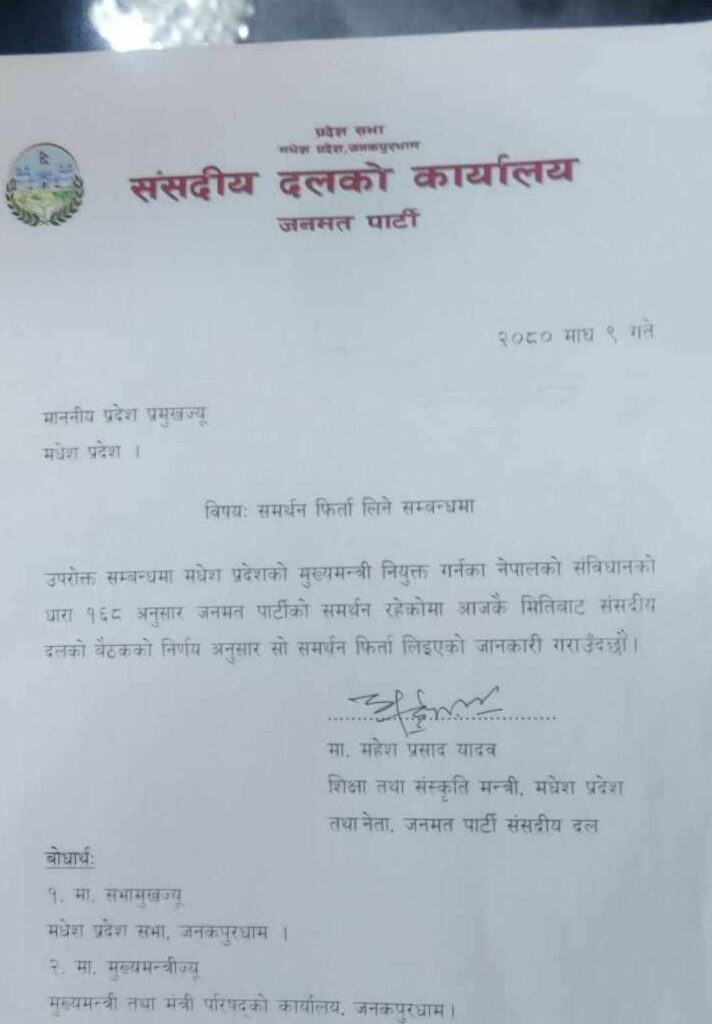 प्रदेश सभा
मधेश प्रदेश,जनकपुरधाम
संसदीय दलको कार्यालय
जनमत पार्टी
२०८० माघ ९ गते
माननीय प्रदेश प्रमुखज्यू
मधेश प्रदेश ।
विषयः समर्थन फिर्ता लिने सम्बन्धमा
उपरोक्त सम्बन्धमा मधेश प्रदेशको मुख्यमन्त्री नियुक्त गर्नका नेपालको संविधानको
धारा १६८ अनुसार जनमत पार्टीको समर्थन रहेकोमा आजकै मितिबाट संसदीय
दलको बैठकको निर्णय अनुसार सो समर्थन फिर्ता लिइएको जानकारी गराउँदछौं।
मा. महेश प्रसाद यादव
शिक्षा तथा संस्कृति मन्त्री, मधेश प्रदेश
तथा नेता, जनमत पार्टी संसदीय दल
बोधार्थः
१. मा. सभामुखज्यू
मधेश प्रदेश सभा, जनकपुरधाम ।
२. मा. मुख्यमन्त्रीज्यू
मुख्यमन्त्री तथा मंत्री परिषद्को कार्यालय, जनकपुरधाम।